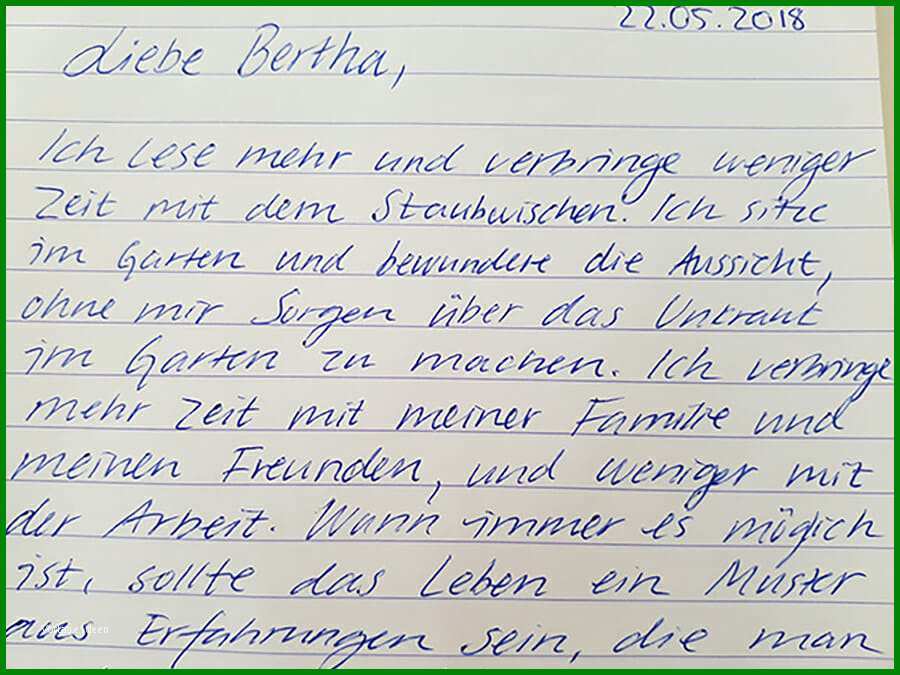 22.05.2018
Liebe Bertha,
Ich lese mehr und verbringe weniger
Zeit mit dem Staubwischen. Ich sitze
im Garten und bewundere die Aussicht,
ohne mir Sorgen über das Unkraut
im Garten zu machen. Ich verbringe
mehr Zeit mit meiner Familie und
meinen Freunden, und weniger mit
der Arbeit. Wann immer es mögich
ist, sollte das Leben ein Muster
aus Erfahrungen sein, die man